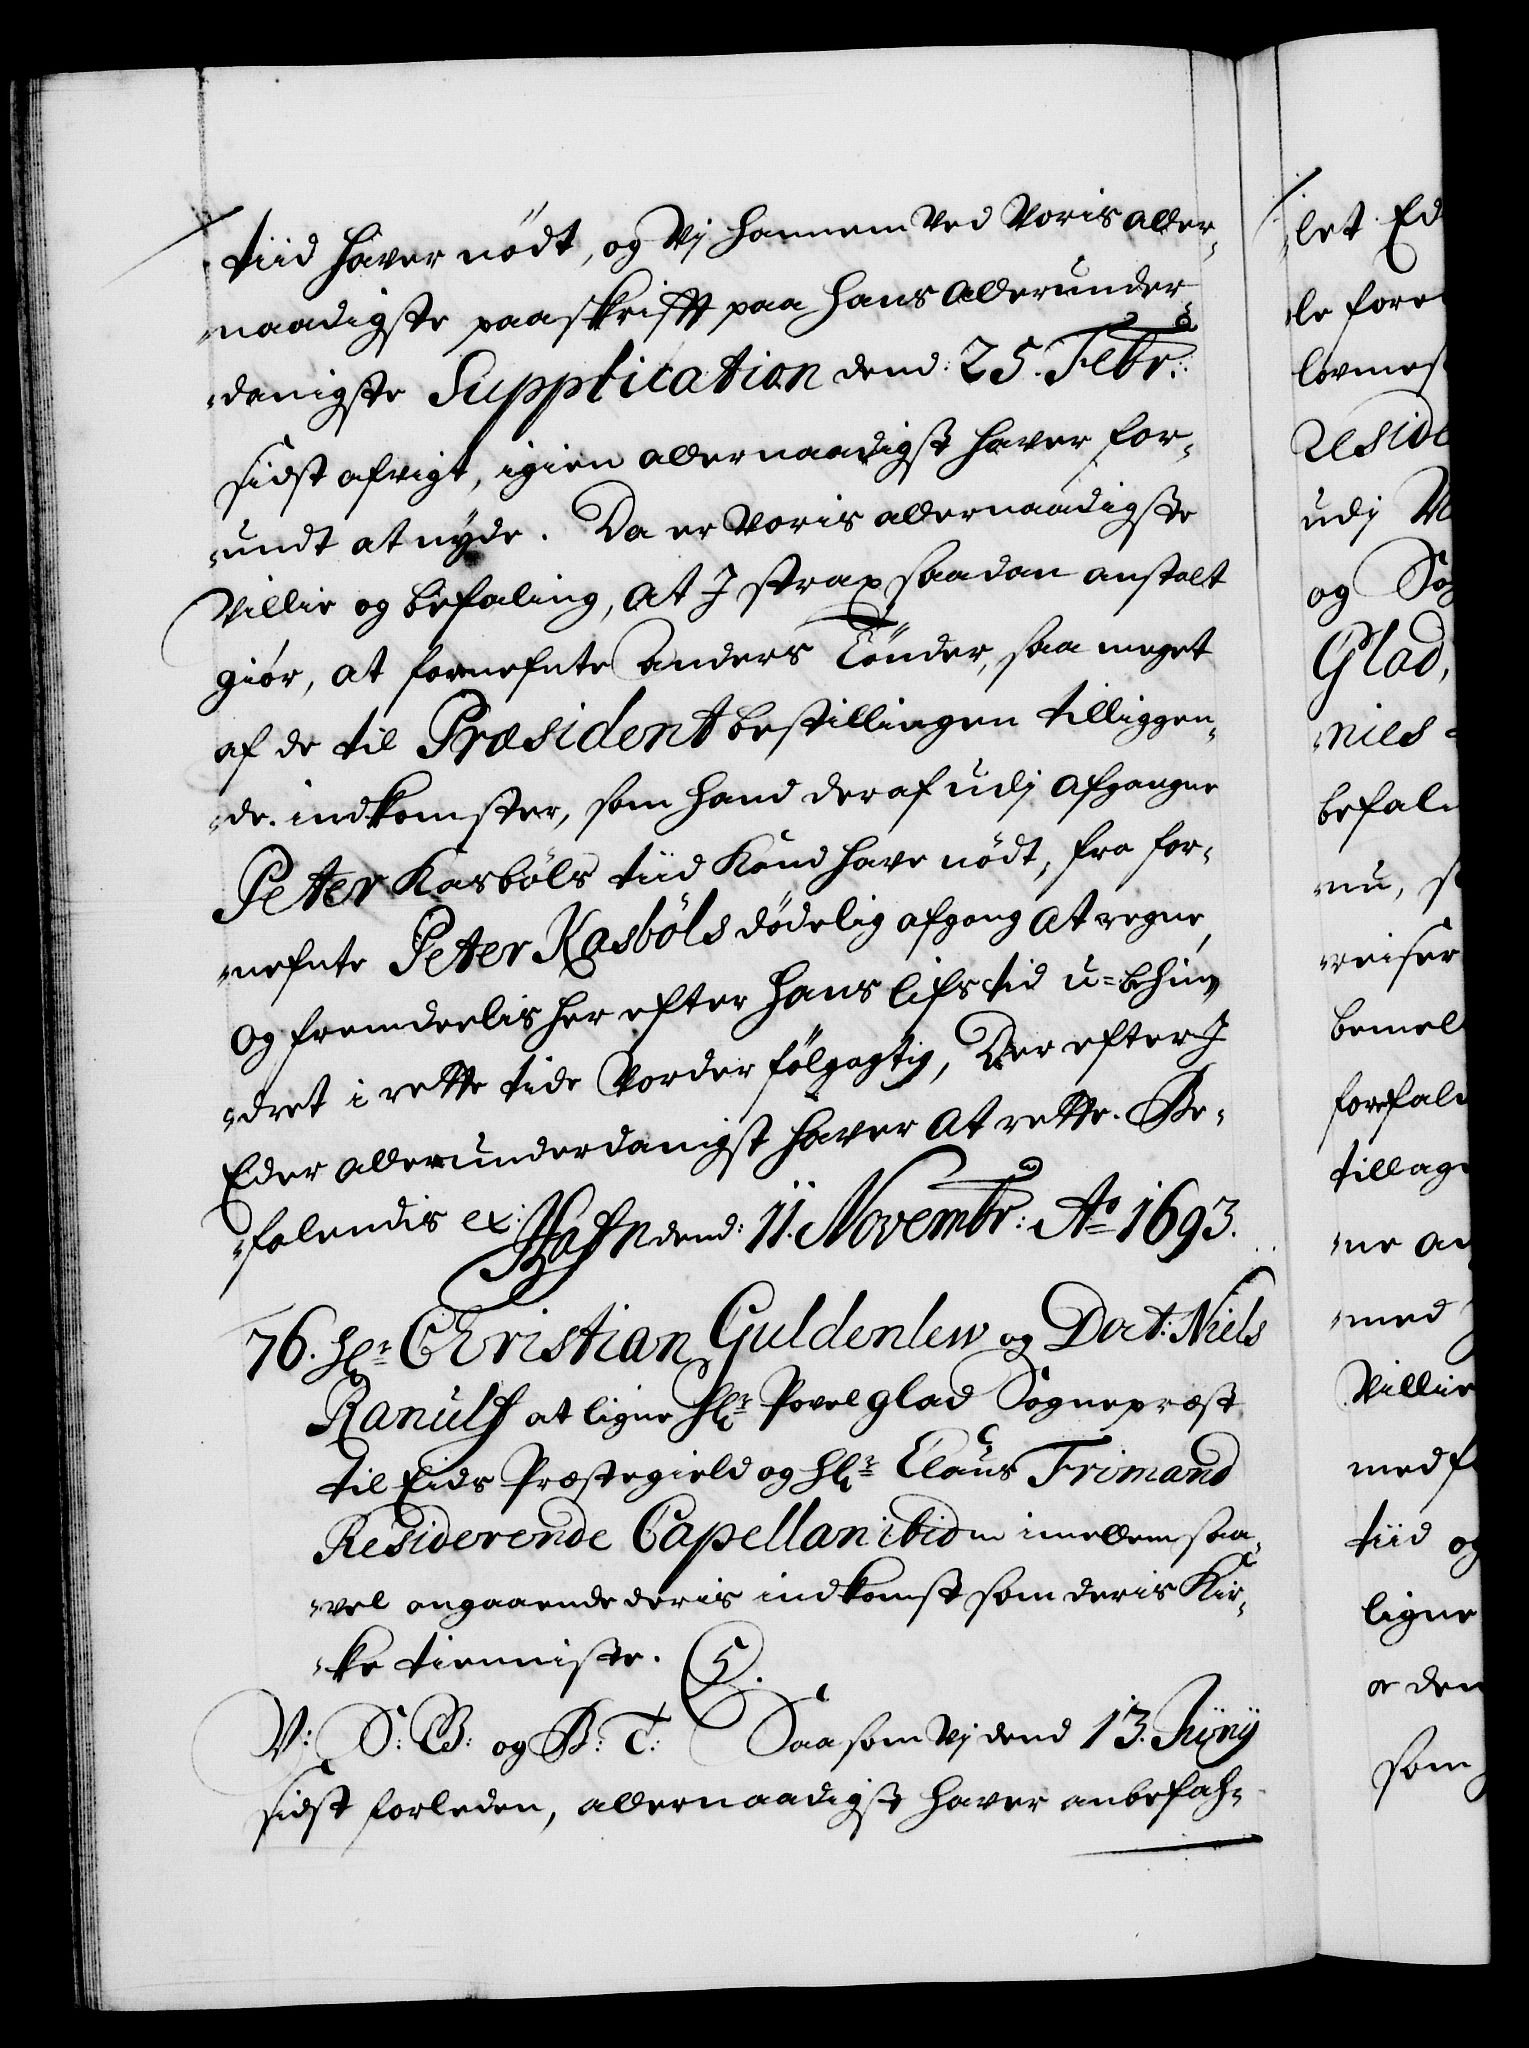 tiid haver nödt, og Vj hannem Ved Voris aller-
naadigste paaskrifft paa hans allerunder-
danigste Supplication dend: 25. Febr:
sidst afvigt, igien allernaadigst haver for-
undt at nyde. Da er Voris allernaadigste
Villie og befaling, at J strax saadan anstalt
giör, at fornefnte Anders Tönder, saa meget
af de til Præsident bestillingen tilliggen-
de indkomster, som hand deraf udj afgangne
Peter Kasböls tiid Kand have nödt, fra for-
nefnte Peter Kasböls dödelig afgang at regne,
og fremdeelis her efter hans lifs tid u-behin-
dret i rette tide Vorder fölgagtig, Der efter J
Eder allerunderdanigst haver at rette. Be-
falendis ex: Hafn dend: 11. Novembr: Ao 1693.
76. Hr: Christian Guldenlew og Doct: Niels
Ranulf at ligne Hr: Povel glad Sognepræst
til Eids Præstegield og Hr: Claus Frimand
Residerende Capellan ibidm imellem saa-
vel angaaende deris indkomst som deris Kir-
ke tienniste. S.
V: S: G: og B: T: Saasom Vj dend 13. Junij
sidst forleden, allernaadigst haver anbefah-
let Ed
le fore
lovmes
Reside
udj
og
Glad,
nies
befal
nu,
reiser
bemel
forefal
tillag
ne
med
Villie
med
tiid og
ligne
den
som